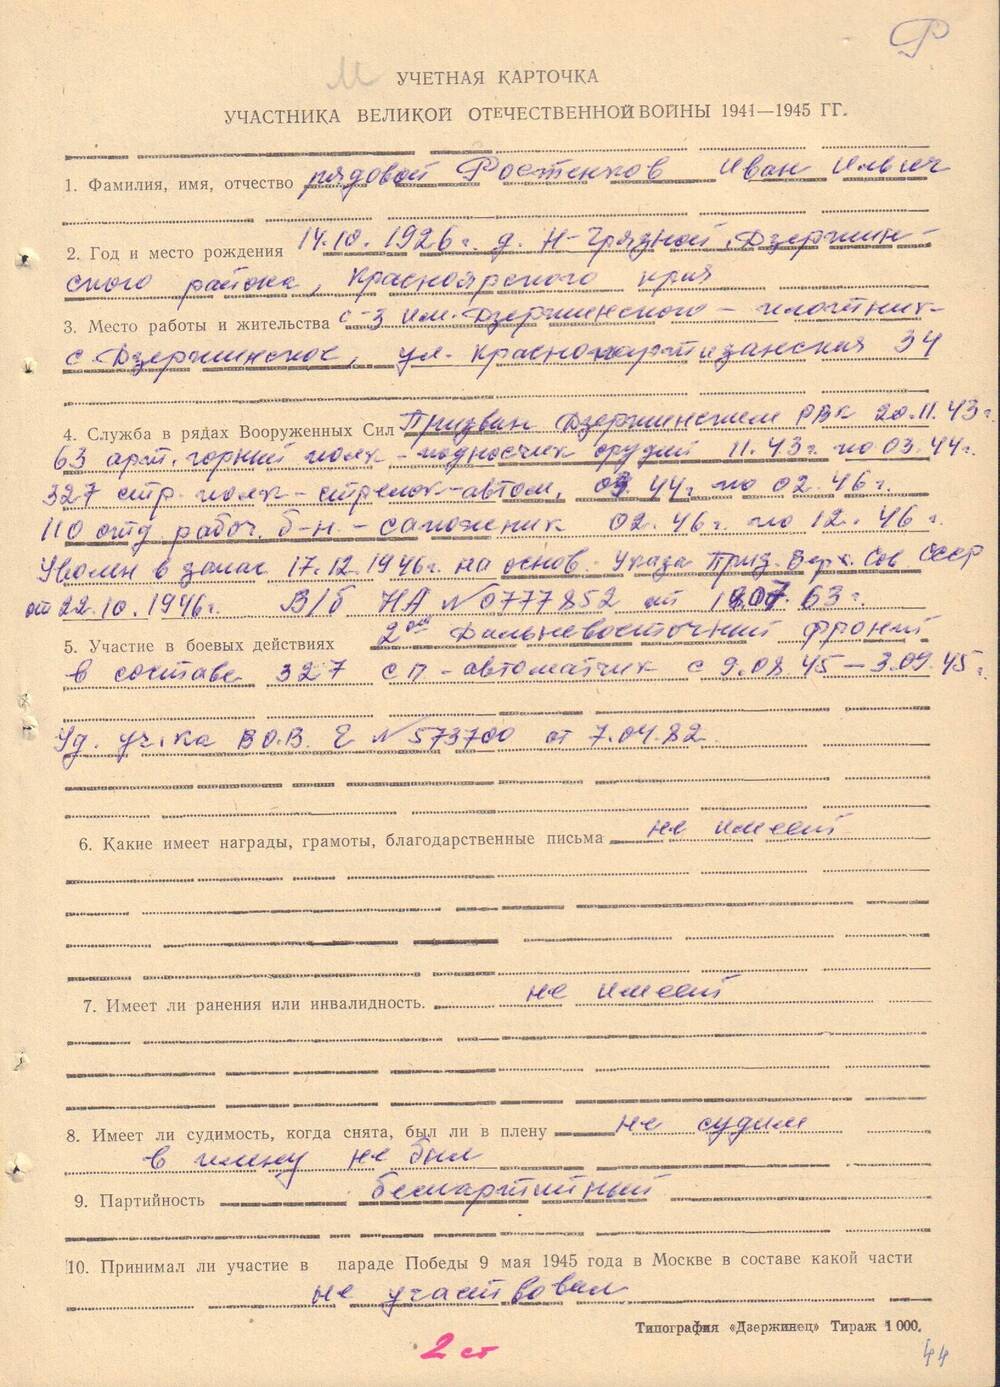 Ф
М
УЧЕТНАЯ КАРТОЧКА
УЧАСТНИКА ВЕЛИКОЙ ОТЕЧЕСТВЕННОЙ ВОЙНЫ 1941—1945 ГГ.
1. Фамилия, имя, отчество рядовой Ростенков Иван Ильич
2. Год и место рождения 14.10.1926 г. д. Н-Грязной, Дзержин-
ского района, Красноярского края
3. Место работы и жительства с-з им. Дзержинского – плотник
с. Дзержинское, ул. Краснопартизанская 34
4. Служба в рядах Вооруженных Сил Призван Дзержинским РВК 20.11.43 г.
63 арт. горний полк – подносчик орудий 11.43 г. по 03.44 г.
327 стр. полк – стрелок-автом. 03 44 г. по 02.46 г.
110 отд рабоч. б-н. – сапожник 02.46 г. по 12.46 г.
Уволен в запас 17.12.1946 г. на основ. Указа През. Верх. Сов. СССР
от 22.10.1946 г. В/б НА №0777852 от 07.63 г.
5. Участие в боевых действиях 2ой Дальневосточний фронт
в составе 327 сп – автоматчик с 9.08.45 – 3.09.45 г.
Уд. уч-ка В.О.В. Г №573700 от 7.04.82
6. Какие имеет награды, грамоты, благодарственные письма не имеет
7. Имеет ли ранения или инвалидность. не имеет
8. Имеет ли судимость, когда снята, был ли в плену не судим
в плену не был
9. Партийность беспартийный
10. Принимал ли участие в параде Победы 9 мая 1945 года в Москве в составе какой части
не участвовал
Типография «Дзержинец» Тираж 1 000.
2 ст
44